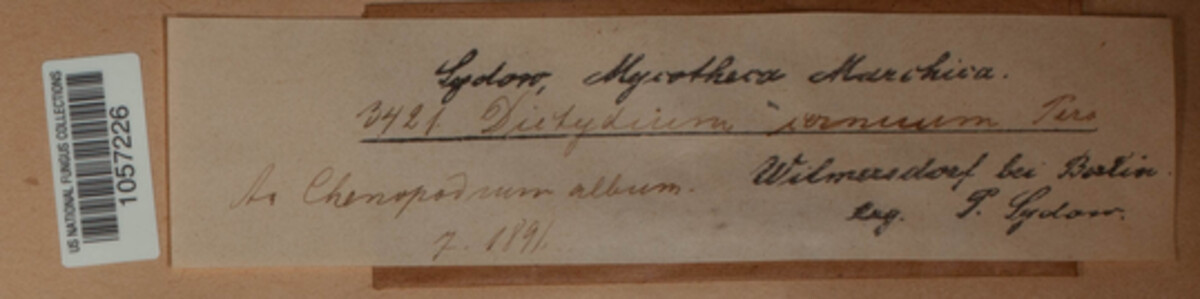 US NATIONAL FUNGUS COLLECTIONS
1057226
Sydow, Mycotheca Marchica.
3421 Dictydium cernuum Pers
An Chenopodium album.
Wilmersdorf bei Berlin.
leg. P. Sydow.
7. 1891.